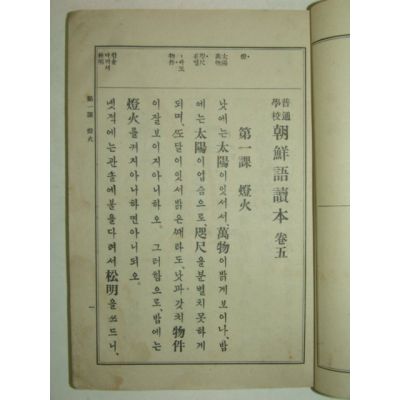 普通學校 朝鮮語讀本 卷五
第一課 燈火
낫에는太陽이잇서서、萬物이밝게보이나、밤
에는太陽이업슴으로、咫尺을분별치못하게
되며、또달이잇서밝은때라도、낫과갓치物件
이잘보이지아니하오。그러함으로、밤에는
燈火를켜지아니하면아니되오。
녯적에는관솔에불을다려서松明을쓰드니、
燈
太陽
萬物
咫尺
物件
第一課 燈火
一